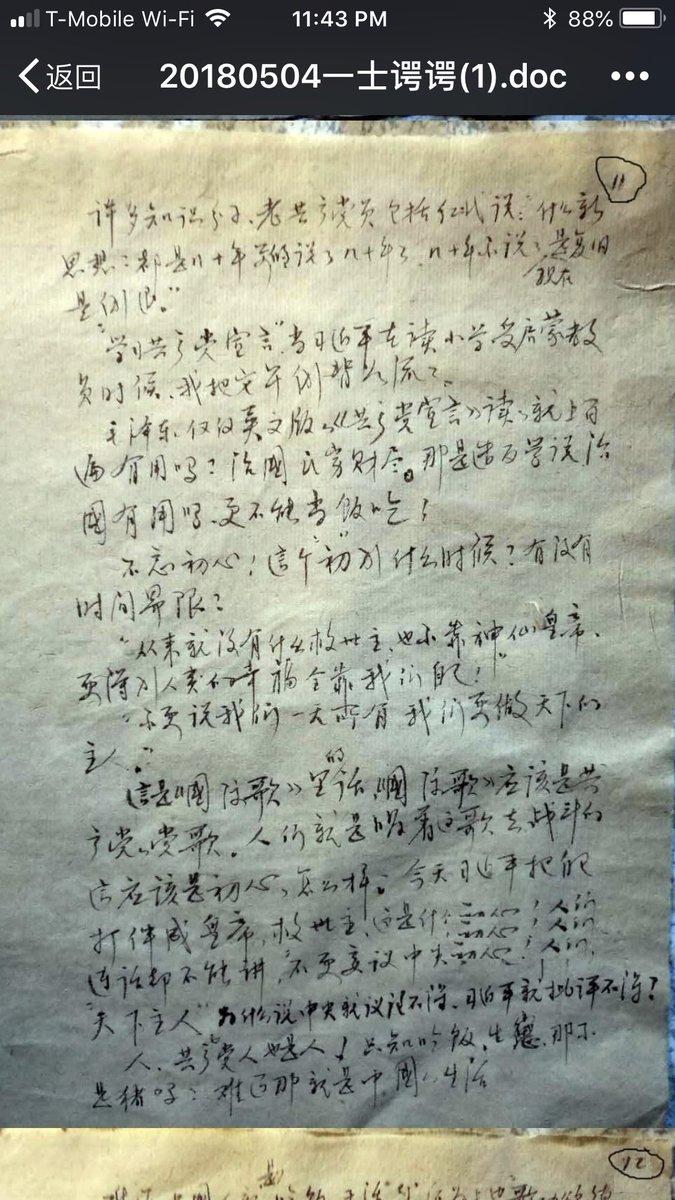 T-Mobile Wi-Fi 11:43 PM 88%
返回 20180504一士谔谔(1).doc
11
许多知识分子、老共产党员包括红代说：什么新
思想？都是几十年前的说了几十年了，几十年不说了，是复旧
现在
是倒退。”
“学习共产党宣言”，当习近平在读小学受启蒙教
员时候，我把它早倒背如流了。
毛泽东仅仅英文版《共产党宣言》读就上百
遍有用吗？治國民穷财尽。那是造反学说治
國有用吗，更不能当饭吃！
不忘初心！这个“初”到什么时候？有没有
时间界限？
“从来就没有什么救世主，也不靠神仙皇帝、
要得到人类的幸福全靠我们自己！”
“不要说我们一无所有 我们要做天下的
主人。”
的
這是《國际歌》里话，《國际歌》应该是共
产党党歌。人们就是唱着这歌去战斗的
這应该是初心，怎么样。今天习近平把自己
打伴成皇帝，救世主，这是什么初心！人们
连话却不能讲，“不要妄议中央”初心！人们
“天下主人”为什么说中央就议论不得、习近平就批评不得？
人、共产党人也是人！只知吃饭、生 那不
是猪吗？难道那就是中國人生活
12